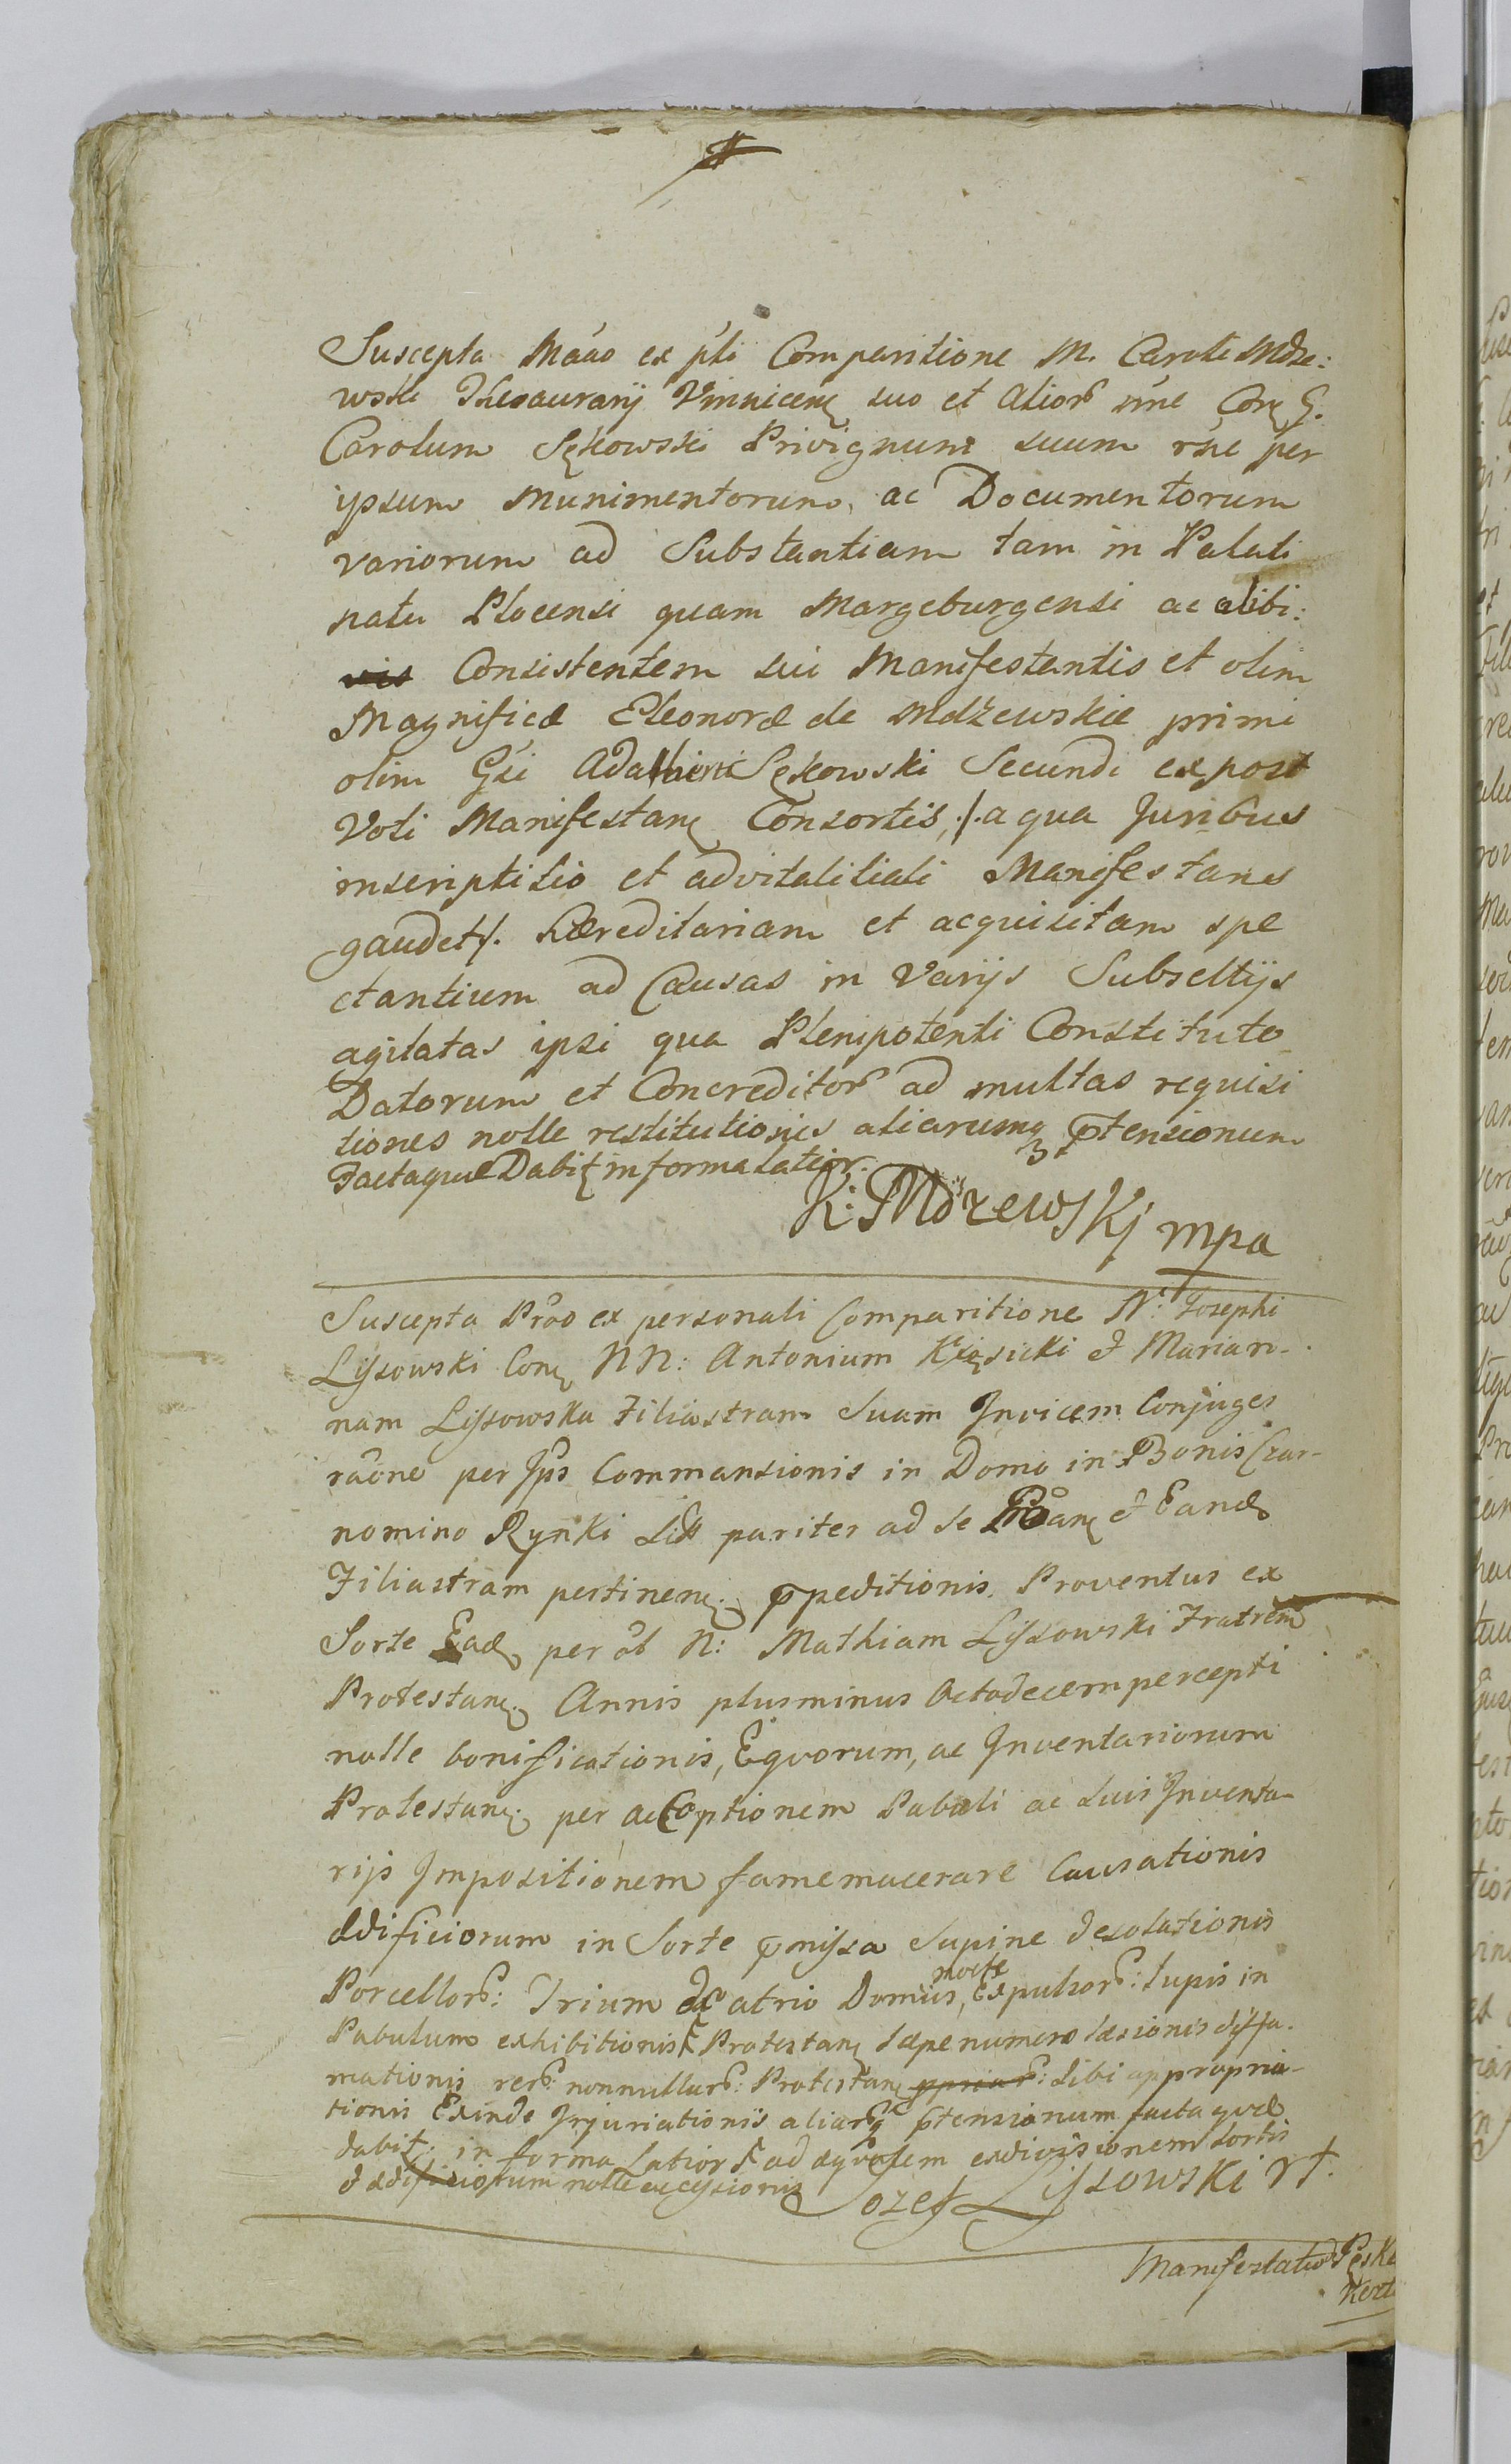 Suscepta Mãao ex pśli Comparitione M. Caroli Mdze:
wski Thesaurarij Vinnicenę suo et alior̃ nňe Conę G.
Carolum Sękowski Privignum suum rňe per
ipsum Munimentorum, ac Documentorum
variorum ad Substantiam tam in Palati
natu Plocensi quam Margeburgensi ac alibi:
Consistentem sui Manifestantis et olim
Magnificæ Eleonoræ de Mdżewskie primi
olim Gśi Sękowski Secundi ex post
Voti Manifestanę Consortis, ./. a qua Juribus
inscriptitio et advitalitiali Manifestans
gaudet /. hæreditariam et acquisitam spe
ctantium ad Causas in Varijs Subsellijs
agitatas ipsi qua Plenipotenti Constituto
Datorum et Concreditor̃ ad multas requisi
tiones nolle restitutionis aliarumq p̃tensionum
Factaque Dabiṯ in forma latior.
K: Mdzewski mpa
Suscepta Prão ex personali Comparitione N: Josephi
Lysowski Conę NN: Antonium Księsicki & Marian-
nam Lyssowska Filiastram Suam Invicem Conjuges
raône per Ips Commansionis in Domo in Bonis Czar-
nomino Rynki pariter ad se & Eandę
Filiastram pertinenę. p̃peditionis Proventus ex
Sorte Eadę per ôb N: Mathiam Lyssowski Fratrem
Protestanę. Annis plusminus Octodecem percepti
nolle bonificationis, Equorum, ac Inventariorum
Protestanę. per acCoptionem Pabuli ac suis Inventa-
rijs Impositionem fame macerare Causationis
ædificiorum in Sorte p̃missa Supine desolationis
Porcellor̃: Trium ex atrio Domus, nocte Expulsor̃: lupis in
Pabulum exhibitionis Protestanę sæpenumero læsionis diffa-
mationis rer̃: nonnullar̃: Protestanę sibi appropria-
tionis Exinde Injuriationis aliar̃q p̃tensionum factaquæ
dabiṯ: in forma Latior & ad æqualem exdivisionem sortis
& ædificiorum nolle accessionis
Jozef Lyssowski
Manifestatio